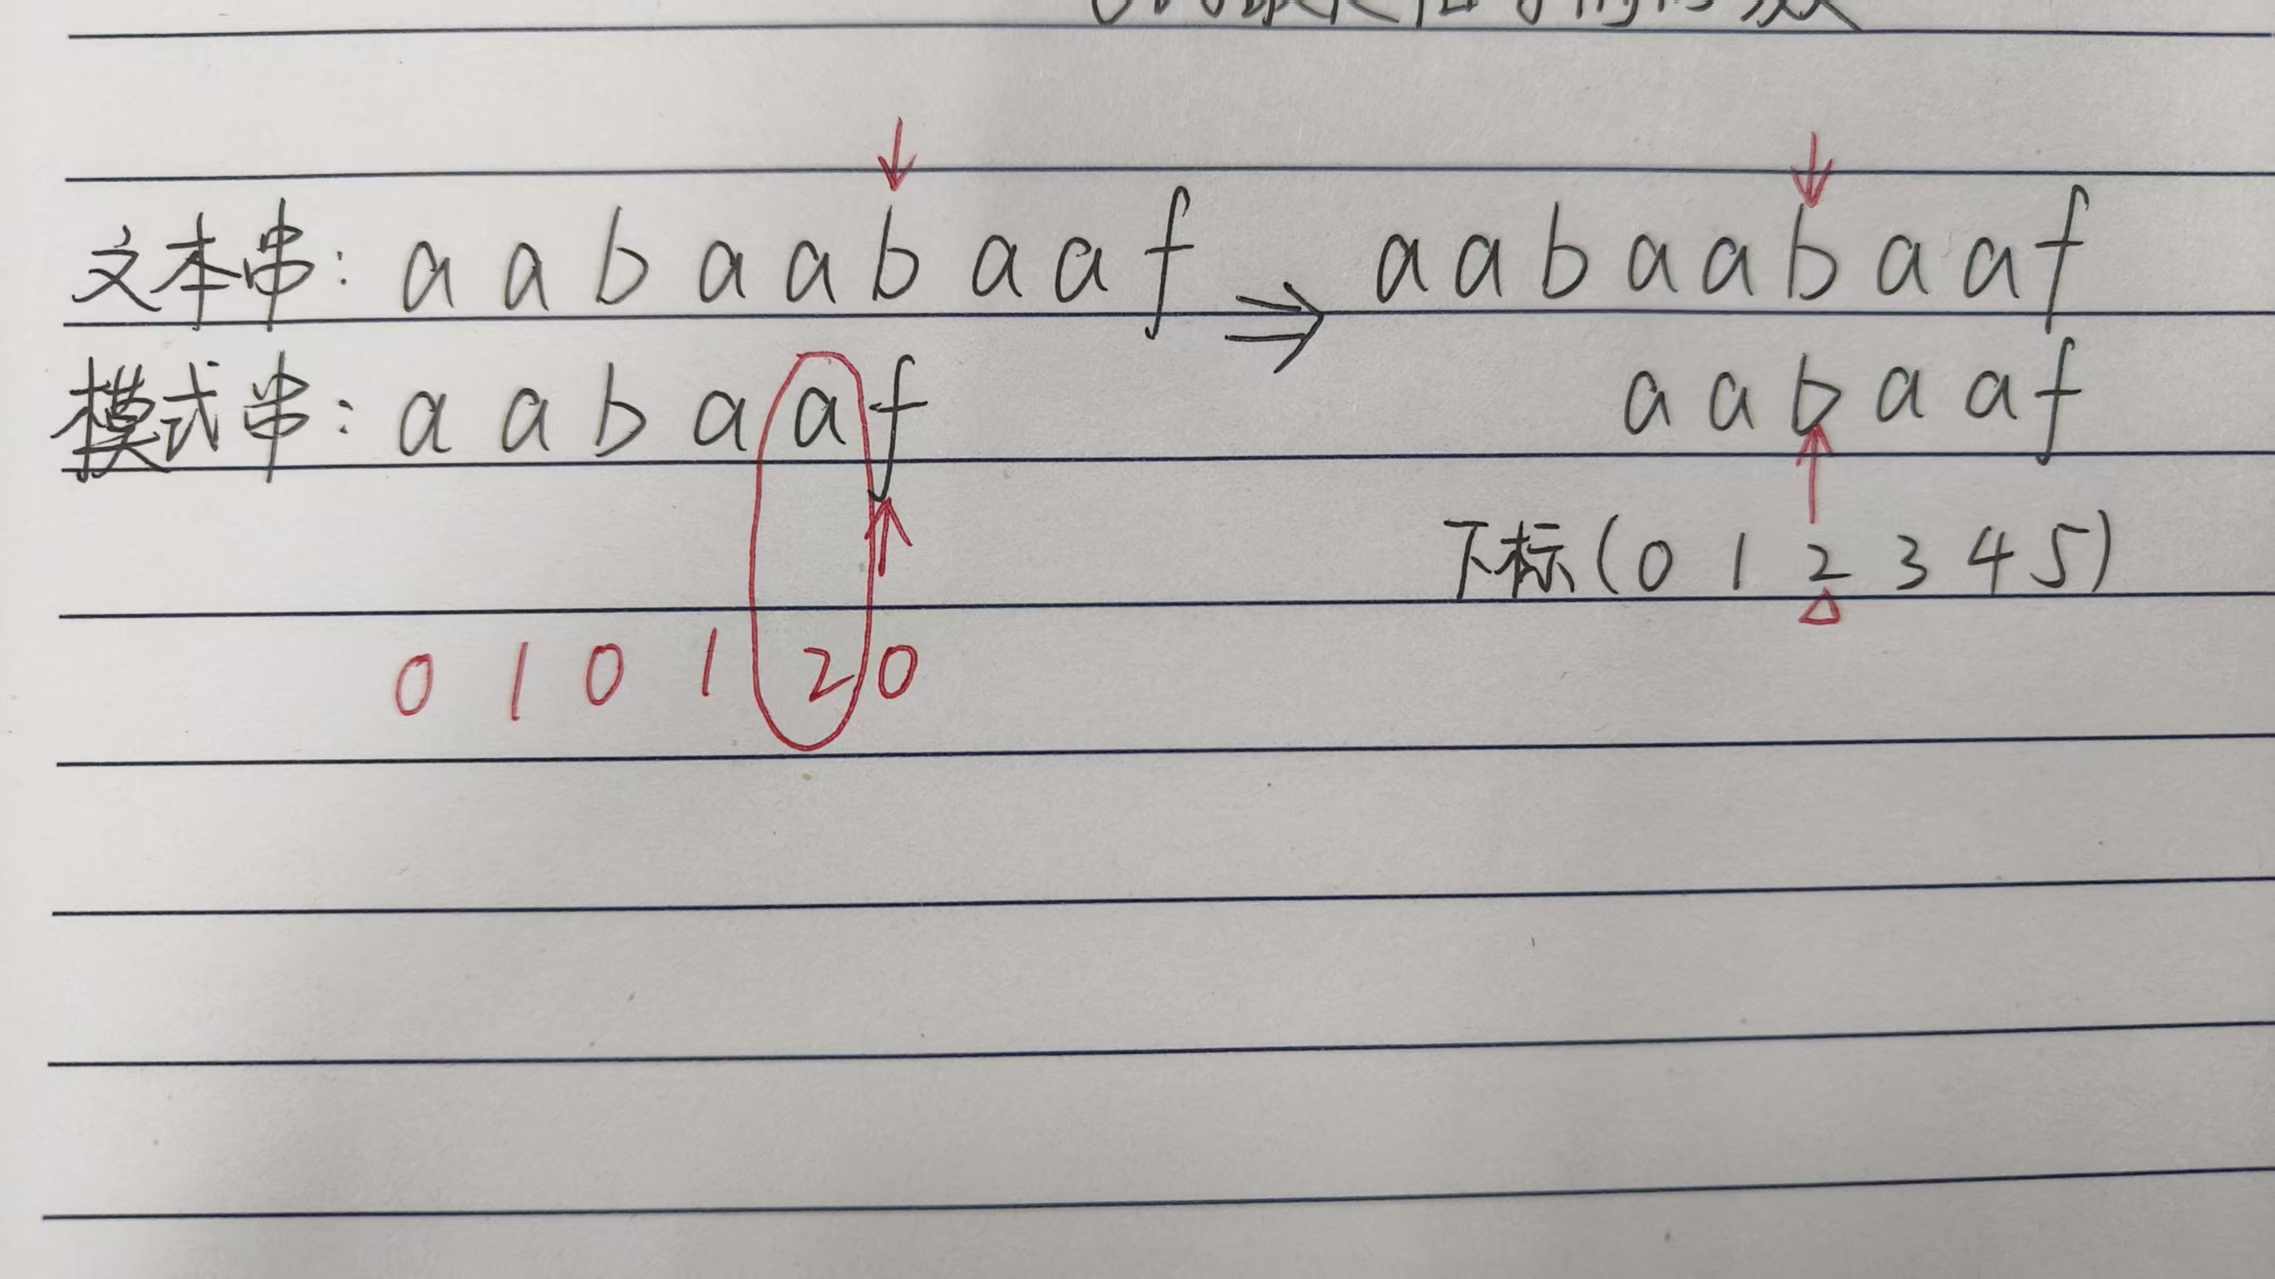 文本串: a a b a a b a a f ⇒ a a b a a b a a f
模式串: a a b a a f a a b a a f
下标(0 1 2 3 4 5)
0 1 0 1 2 0